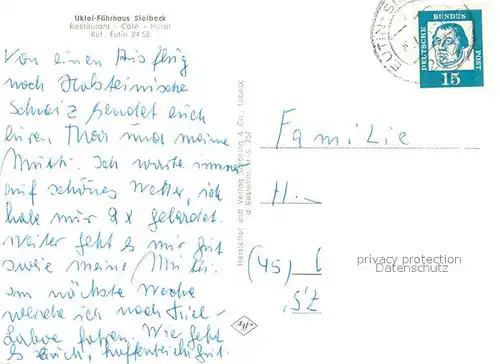 Uklei-Fährhaus Sielbeck
Restaurant - Café - Hotel
Ruf: Eutin 24 58
Von einen Ausflug
nach Holsteinische
Schweiz sendet euch
lieben und meine
Mutti. Ich warte immer
auf schönes Wetter, ich
habe nur 2x gebadet.
Weiter geht es mir gut
sowie meine Mutti.
am nächste Woche
werde ich nach Kiel-
Laboe fahren. Wie geht
es Euch, hoffentlich gut.
Hersteller und Verlag Schöning & Co., Lübeck
Bestellnr. 757
EUTIN-S
DEUTSCHE BUNDES POST
15
Familie
H.
(45)
privacy protection
Datenschutz